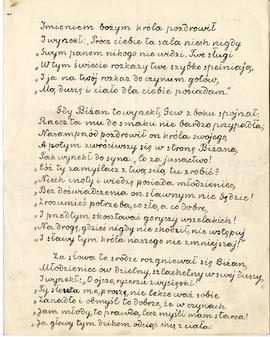 Imieniem bożym króla pozdrowił
I wyrzekł: „Prócz ciebie ta sala niech nigdy
„Swym panem nikogo nie widzi. Twe sługi
„W tym świecie rozkazy twe szybko spełniają,
„I ja na twój rozkaz do czynum gotów,
„Ma, duszę i ciało dla ciebie posiadam."
Gdy Biżan to wyrzekł, Gew z boku spojrzał;
Rzecz ta mu do smaku nie bardzo przypadła;
Naprzód pozdrowił on króla swojego,
A potym zwróciwszy się w stronę Biżana,
Tak wyrzekł do syna: „Co za junactwo!
„Cóż ty zamyślasz z twą siłą tu zrobić?
„Niech cnoty i wiedzę posiada młodzieniec,
„Bez doświadczenia on sławnym nie będzie!
„Zrozumieć potrzeba, co złe, a co dobre,
„I przedtym skosztować goryczy wszelakich!
„Na drogę, gdzieś nigdy nie chodził, nie wstępuj
„I sławy tym króla naszego nie zmniejszaj!"
Za słowa te srodze rozgniewał się Biżan,
Młodzieniec ów dzielny, szlachetny w swej duszy,
I wyrzekł: „O ojcze, rycerzu zwycięski!
„Ty słowa me, proszę, nie lekce waż sobie
„Zanadto i obmyśl to dobrze, że w czynach
„Jam młody, to prawda, lecz myśli mam starca!
„Ja głowy tym dzikom odciąć chcę z ciała.